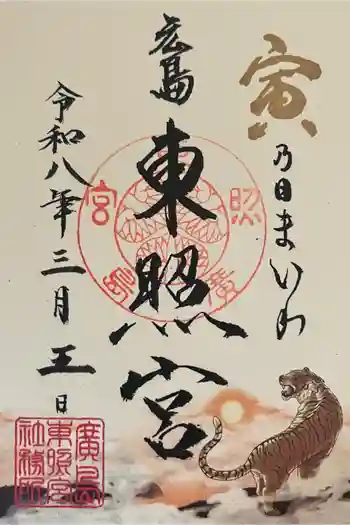 寅乃日まいり
広島
東照宮
令和八年三月五日
廣島
東照宮
社務所